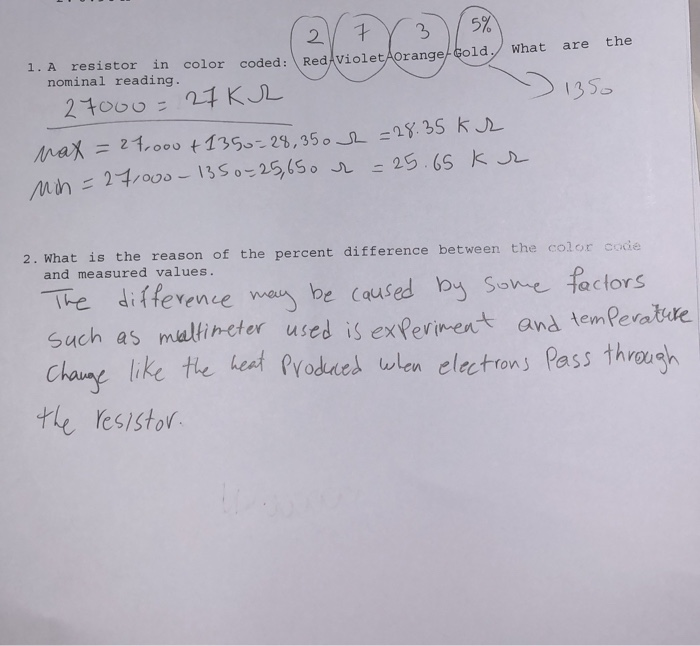 2 7 3 5%
1. A resistor in color coded: Red-Violet-Orange-Gold. What are the
nominal reading.
1350
27000 = 27 K Ω
Max = 27,000 + 1350 = 28,350 Ω = 28.35 K Ω
Min = 27,000 - 1350 = 25,650 Ω = 25.65 K Ω
2. What is the reason of the percent difference between the color code
and measured values.
The difference may be caused by some factors
such as multimeter used is experiment and temperature
change like the heat Produced when electrons Pass through
the resistor.